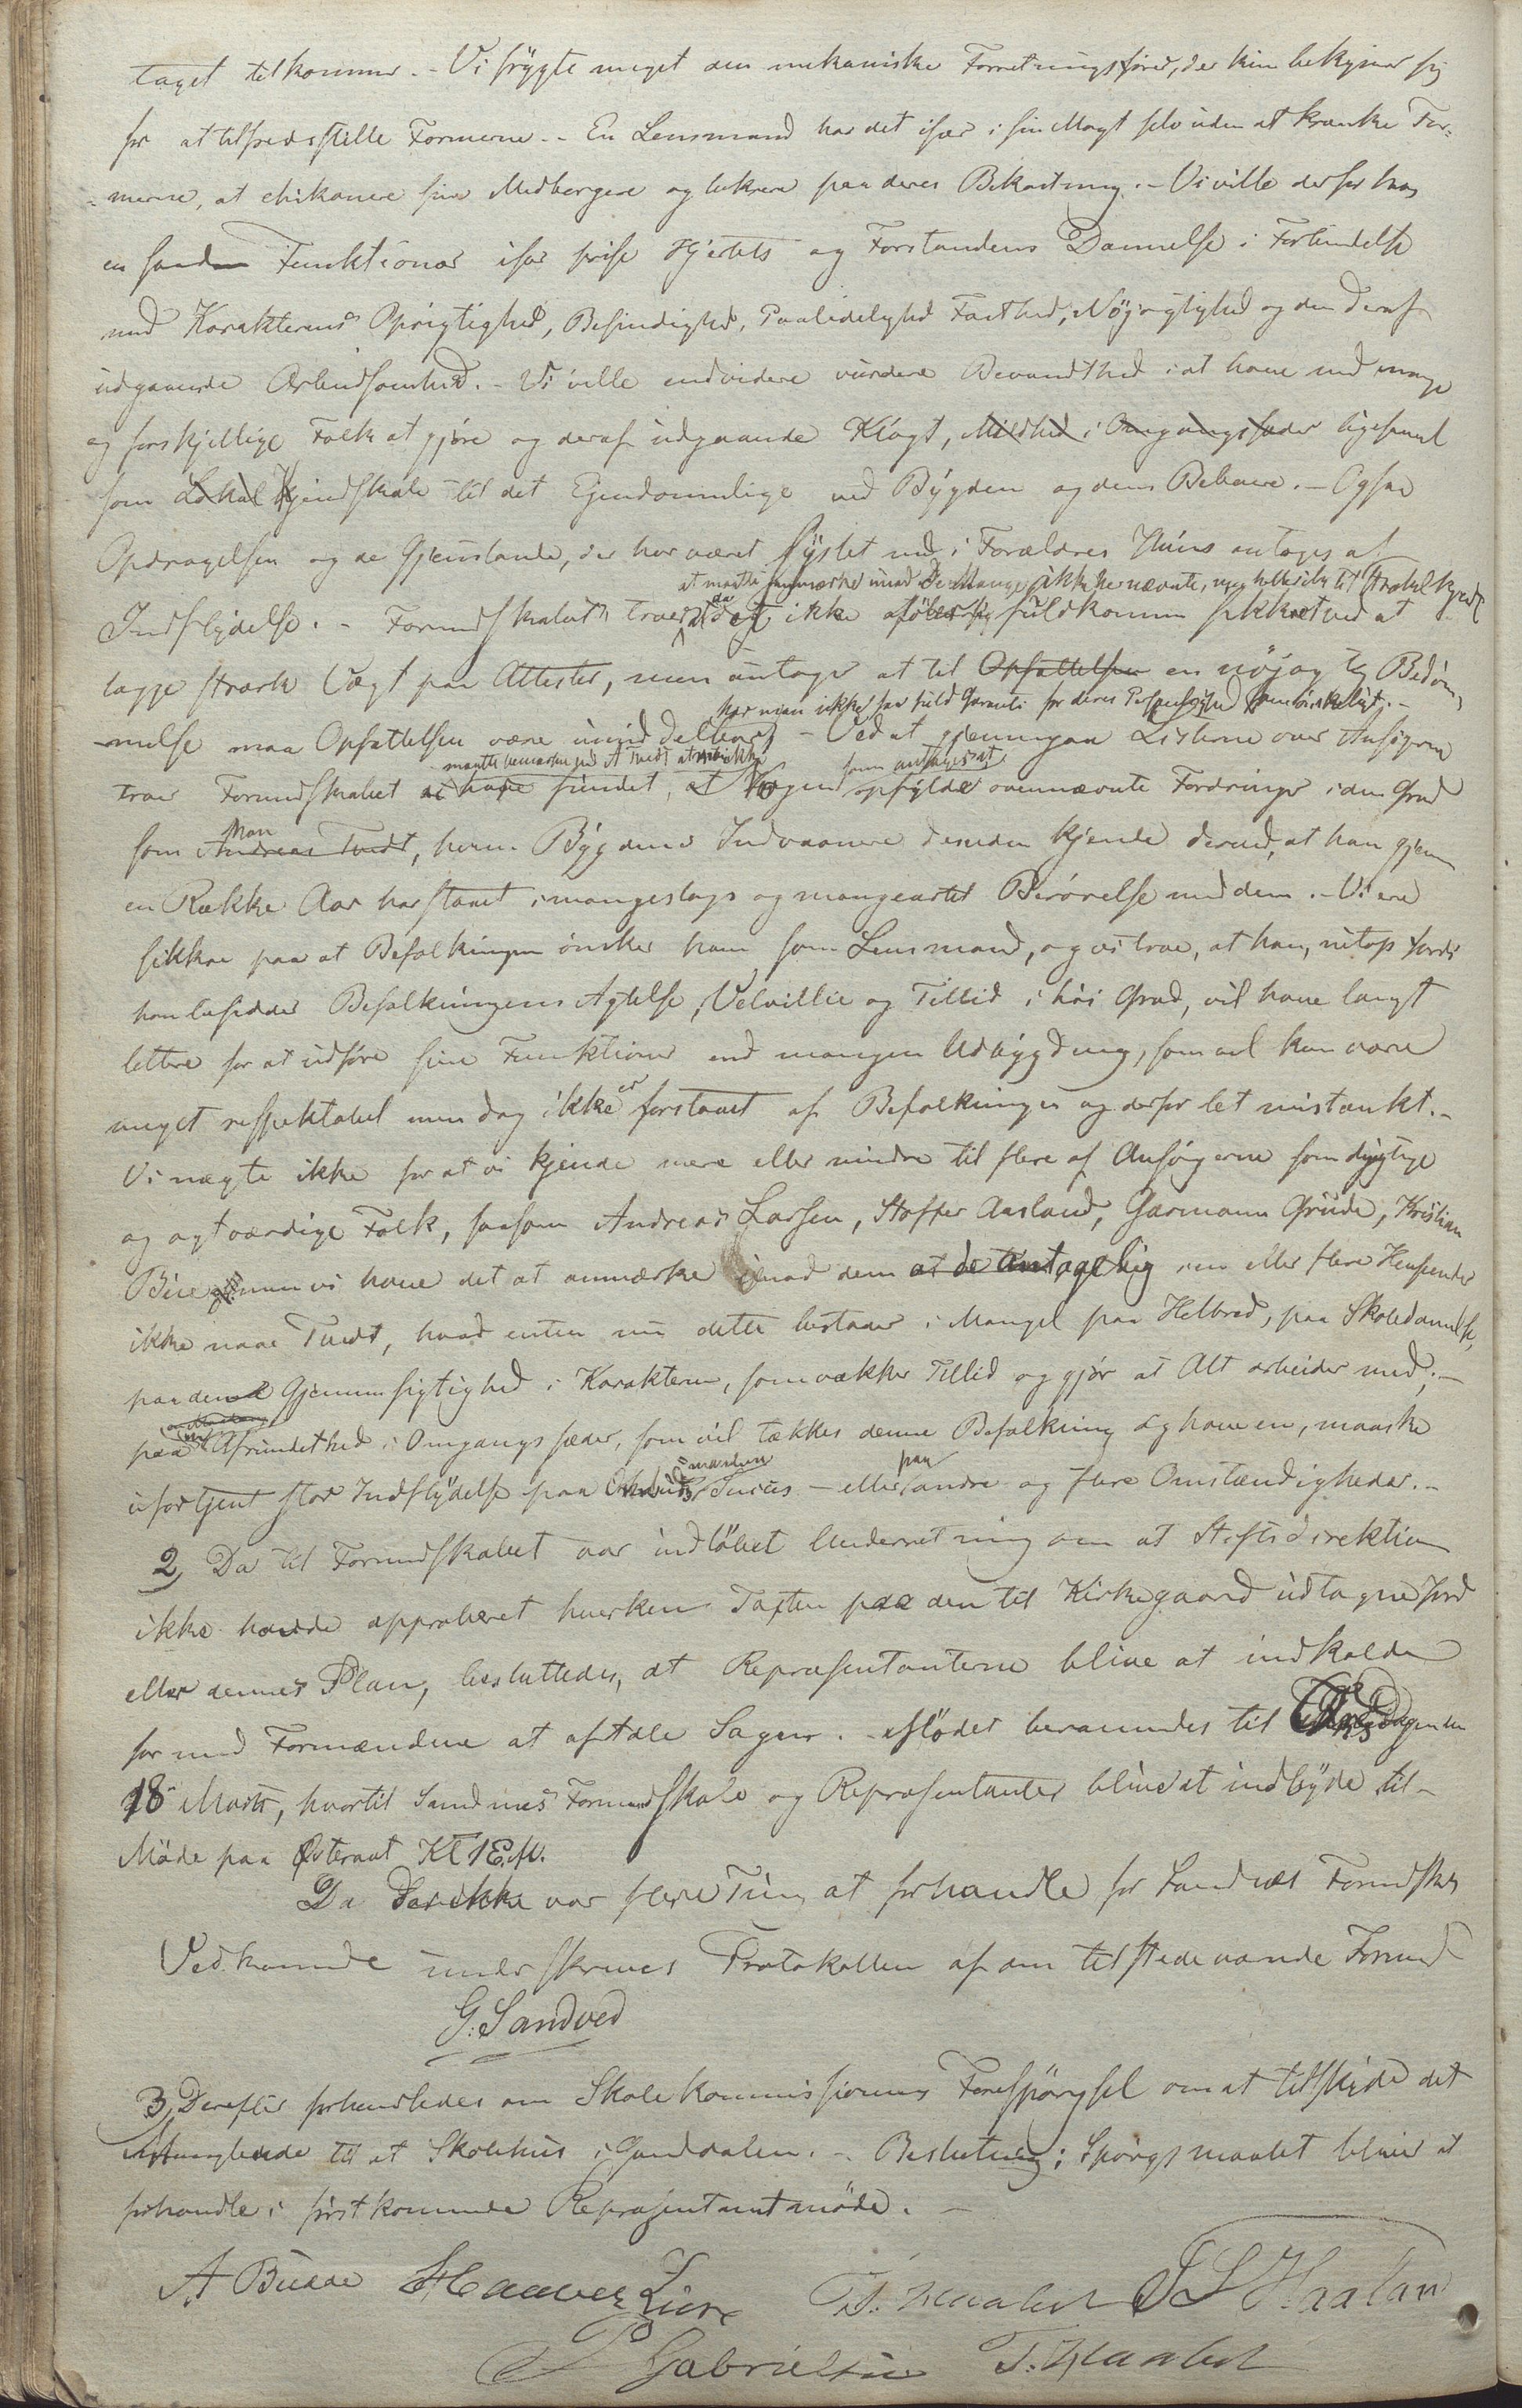 taget tilkommer. - Vi frygte meget den mekaniske Forretningsfører, der kun bekymrer sig
for at tilfredsstille Formerne. - En Lensmand har det især i sin Magt selv uden at krænke For-
-merne, at chikanere sine Medborgere og lukrere paa deres Bekostning. - Vi ville derfor hos
en saadan Funktionær især prise Hjertets og Forstandens Dannelse i Forbindelse
med Karakterens Oprigtighed, Besindighed, Paalidelighed Fasthed, Nøjagtighed og den deraf
udgaaende Arbeidsomhed. - Vi ville endvidere vurdere Bevandthed i at have med mange
og forskjellige Folk at gjøre og deraf udgaaende Klogt, Mildhed i Omgangssæder ligesaavel
som Lokal Kjendskab til det Eiendommelige ved Bygden og dens Beboere. - Ogsaa
Opdragelsen og de Gjenstande, der har været syslet med i Forældres Huus antages af
at maatte anmærke imod de Mange ikke her nævnte, med hensyn til
Indflydelse. - Formandskabet troer at det ikke føler sig fuldkommen sikkret ved at
lægge stærk Vægt paa Attester, men antager at til Opfattelsen en nøjagtig Bedøm-
har man ikke saa fuld Garanti for deres Personlighed som ønskeligt. -
-melse maa Opfattelsen være umiddelbar - Ved at gjennemgaa Listerne over Ansøgerne
maatte bemærkes ved A Tvedt at vi ikke som antages at
troer Formandskabet at have fundet, at Nogen opfylder ovennævnte Fordringer i den Grad
Man
som Andreas Tvedt, hvem Bygdens Indvaanere desuden kjende derved, at han gjennem
en Række Aar har staaet i mangeslags og mangeartet Berørelse med dem. - Vi ere
sikkre paa at Befolkningen ønsker ham som Lensmand, og vi troe, at han, netop fordi
han besidder Befolkningens Agtelse, Velvillie og Tillid i høi Grad, vil have langt
lettere for at udføre sine Funktioner end mangen Udbygding, som vel kan være
meget respektabel men dog ikke er forstaaet af Befolkningen og derfor let mistænkt. -
Vi nægte ikke for at vi kjende mere eller mindre til flere af Ansøgerne som dygtige
og agtværdige Folk, saasom Andreas Larsen, Stoffer Aasland, Garmann Grude, Kristian
Bue men vi have det at anmærke imod dem at de antagelig i en eller flere Henseender
ikke naae Tvedt, hvad enten nu dette bestaaer i Mangel paa Helbred, paa Skoledannelse,
paa denne Gjennemsigtighed i Karakteren, som vækker Tillid og gjør at Alt arbeider med; -
paa Afrundethed i Omgangssæder, som vil tækkes denne Befolkning og have en, maaske
paa
ufortjent stor Indflydelse paa - eller andre og flere Omstændigheder. -
2, Da til Formandskabet var indløbet Underretning om at Stiftsdirektionen
ikke havde approberet hverken Taxten paa den til Kirkegaard udtagne Jord
eller dennes Plan, besluttedes, at Repræsentanterne blive at indkalde
for med Formændene at aftale Sagen. Mødet berammedes til Tirsdagen den
18 Marts, hvortil Sandnes Formandskab og Repræsentanter blive at indbyde til
Møde paa Østeraat Kl 1 E.M.
Da der ikke var flere Ting at forhandle for Sandnæs Formdskabs
Vedkommende underskreves Protokollen af den tilstedeværende Formand
G: Sandved
3, Derefter forhandledes om Skolekommissionens Forespørgsel om at tilskyde det
Manglende til et Skolehus i Ganddalen. - Beslutning: Spørgsmaalet bliver at
forhandle i førstkommende Repræsentantmøde. -
A Buaae Haaver Lure T. Haaland J L Haaland
P Gabrielsen T. Haaland